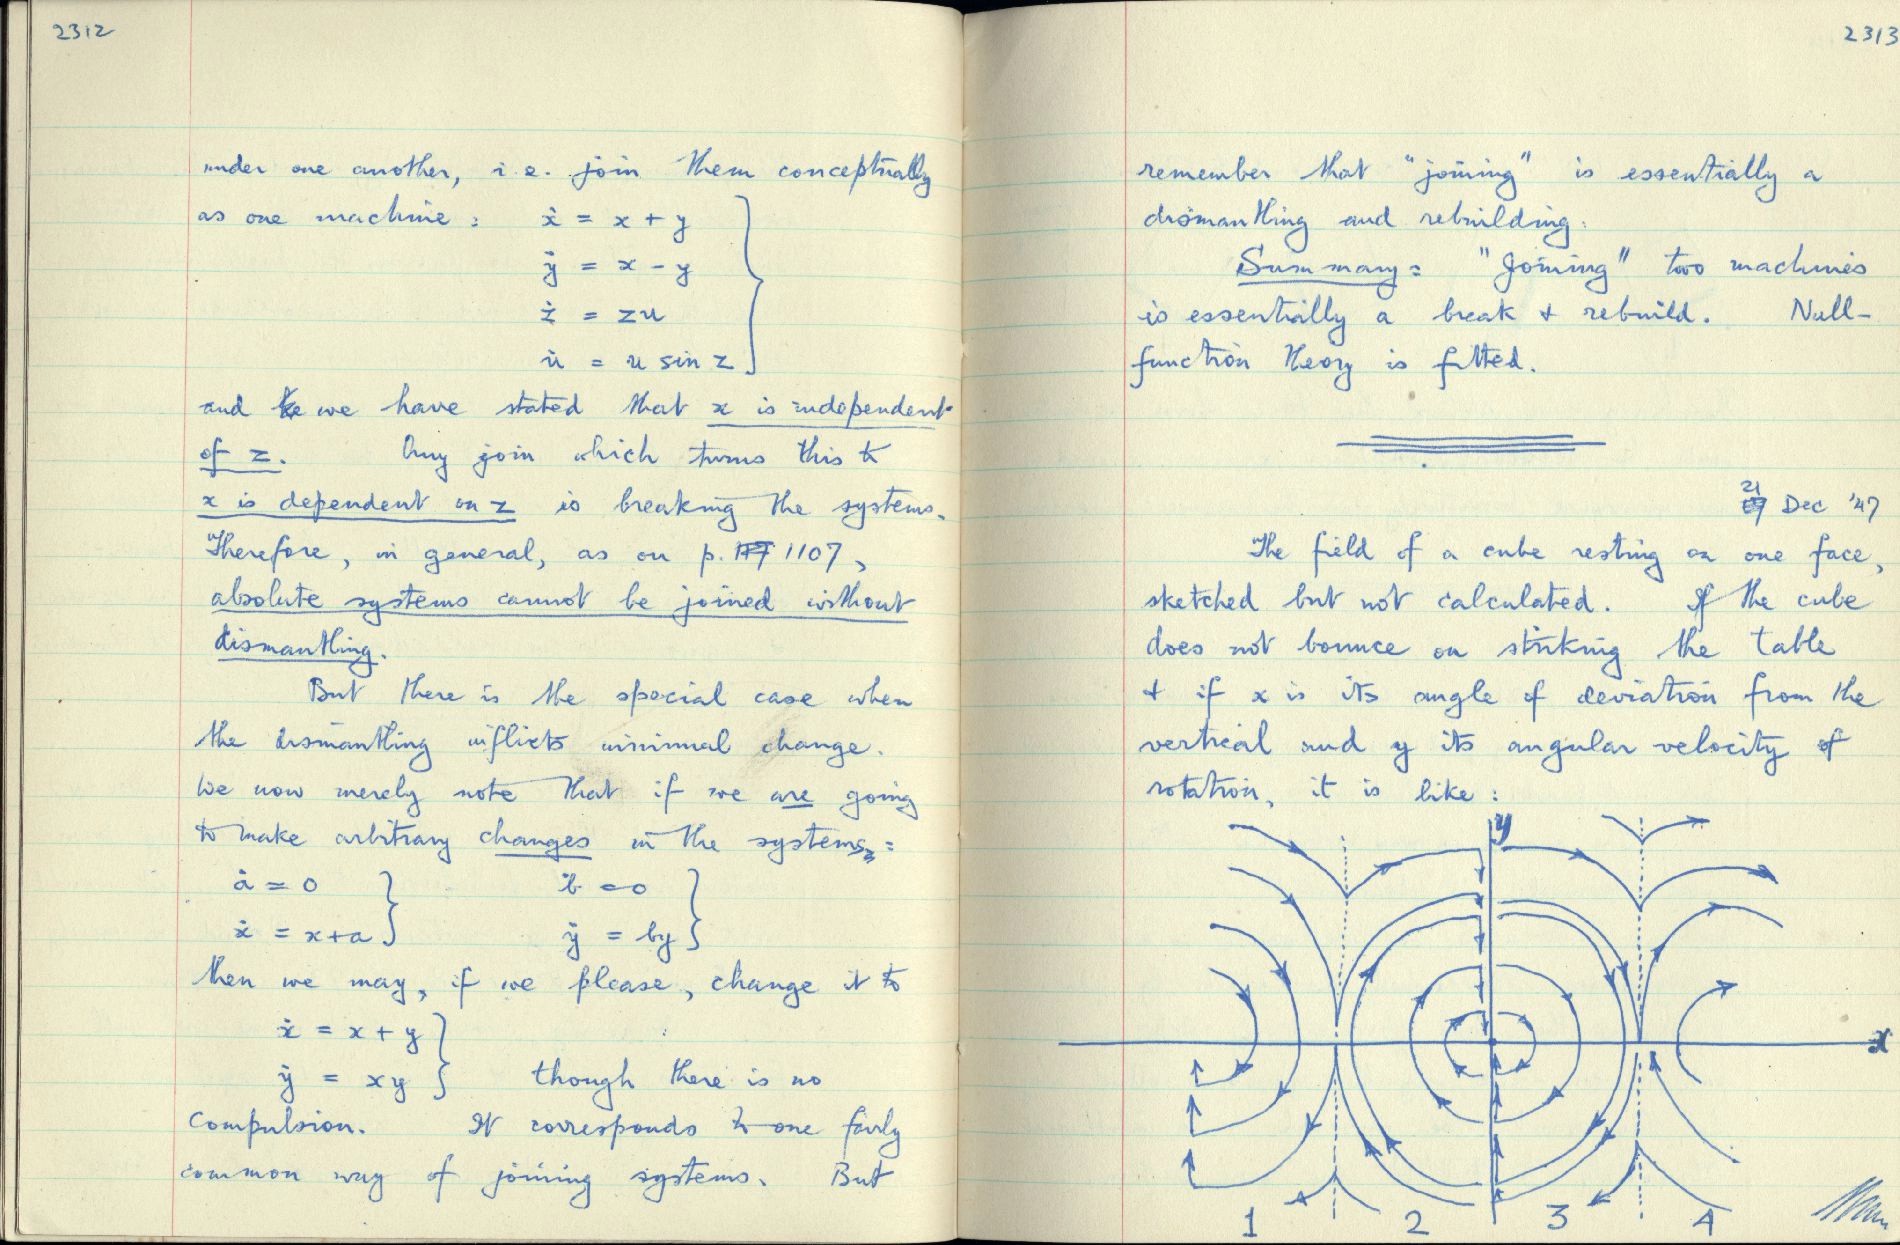 2312
under one another, i.e. join them conceptually
as one machine: ẋ = x + y
ẏ = x - y
ż = zu
u̇ = u sin z
and we have stated that x is independent
of z. Any join which turns this to
x is dependent on z is breaking the systems.
Therefore, in general, as on p. 1107,
absolute systems cannot be joined without
dismantling.
But there is the special case when
the dismantling inflicts minimal change.
We now merely note that if we are going
to make arbitrary changes in the systems:
ȧ = 0 ḃ = 0
ẋ = x+a ẏ = by
then we may, if we please, change it to
ẋ = x + y
ẏ = xy though there is no
compulsion. It corresponds to one fairly
common way of joining systems. But
2313
remember that "joining" is essentially a
dismantling and rebuilding.
Summary: "Joining" two machines
is essentially a break & rebuild. Null-
function theory is fitted.
21 Dec '47
The field of a cube resting on one face,
sketched but not calculated. If the cube
does not bounce on striking the table
& if x is its angle of deviation from the
vertical and y its angular velocity of
rotation, it is like:
y
x
1 2 3 4